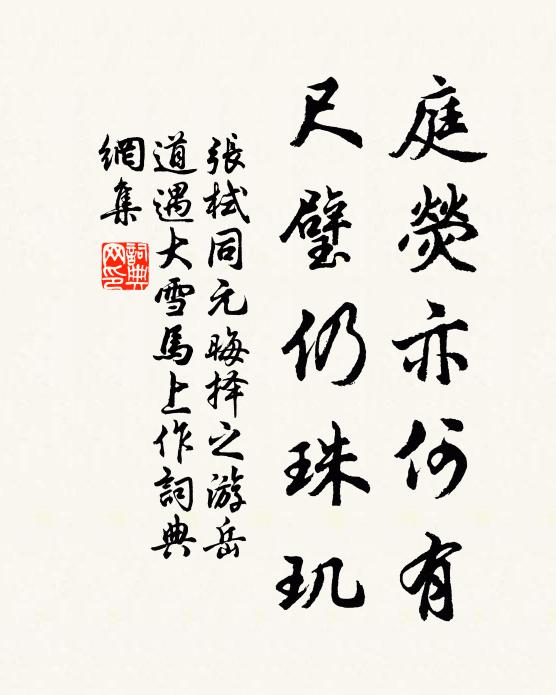 庭熒亦何有
尺璧仍珠玑
張栻同元晦择之游岳
道遇大雪馬上作詞典
網集
詞典
网印